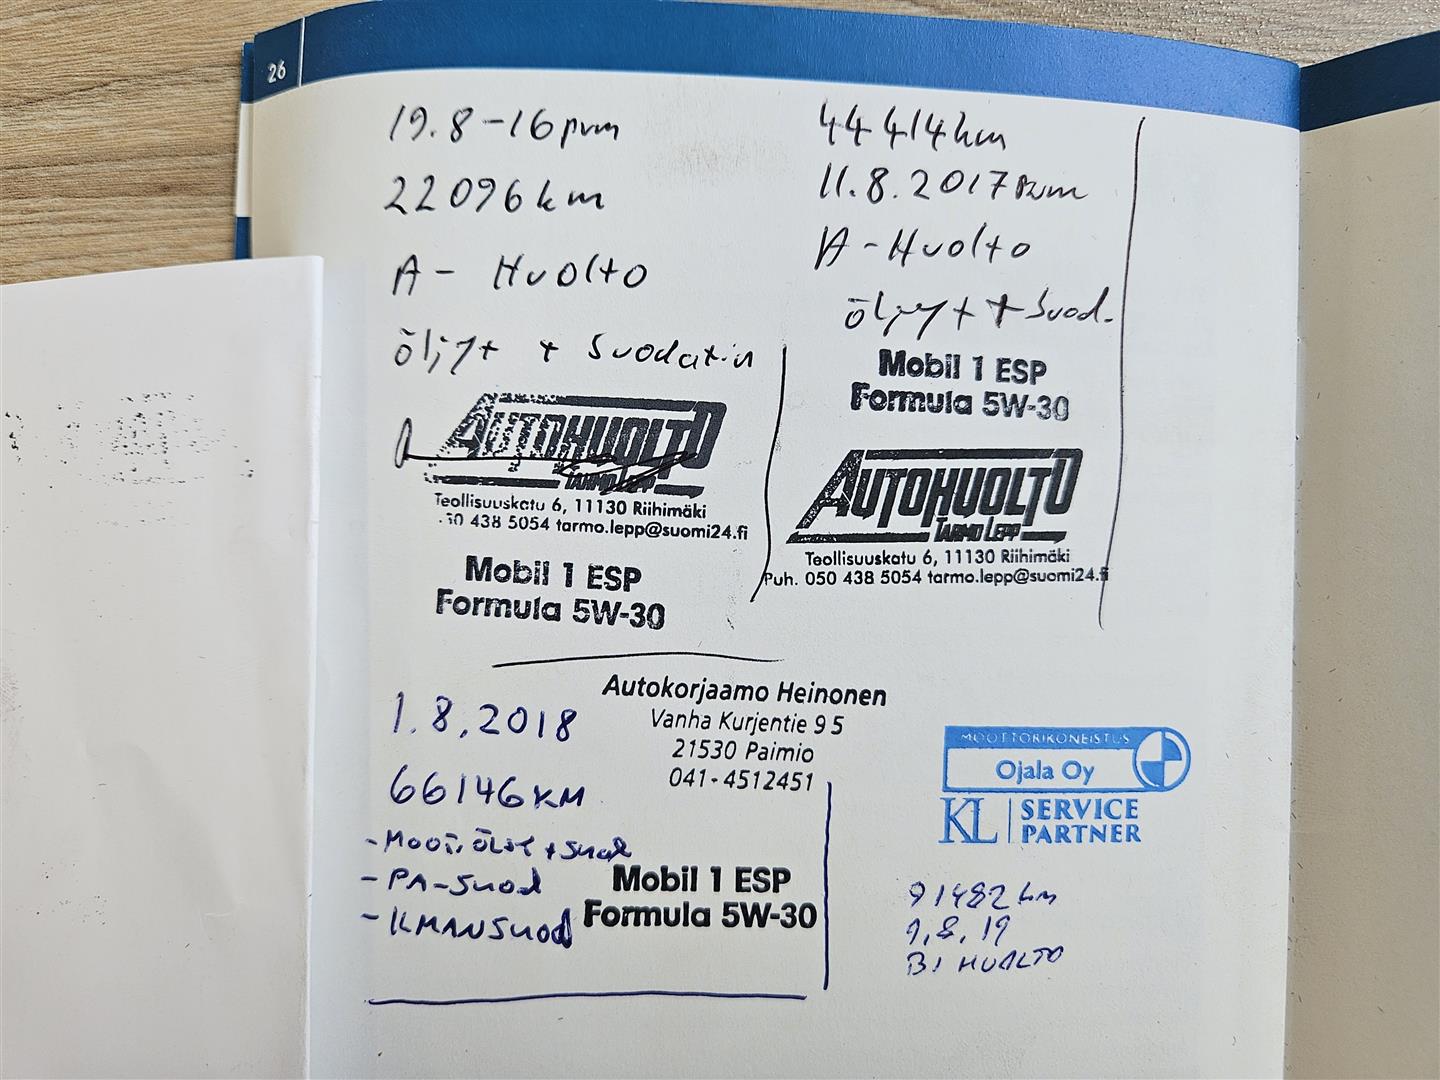 26
19.8-16 pvm
22096 km
A- Huolto
öljyt + Suodatin
AUTOHUOLTO
TARMO LEPP
Teollisuuskatu 6, 11130 Riihimäki
50 438 5054 tarmo.lepp@suomi24.fi
Mobil 1 ESP
Formula 5W-30
44 414 km
11.8.2017 pvm
A-Huolto
öljyt + Suod.
Mobil 1 ESP
Formula 5W-30
AUTOHUOLTO
TARMO LEPP
Teollisuuskatu 6, 11130 Riihimäki
Puh. 050 438 5054 tarmo.lepp@suomi24.fi
Autokorjaamo Heinonen
Vanha Kurjentie 9 5
21530 Paimio
041-4512451
1.8.2018
66146 KM
- MOOT. ÖLJY + SUOD
- PA-SUOD
- ILMANSUOD
Mobil 1 ESP
Formula 5W-30
MOOTTORIKONEISTUS
Ojala Oy
KL SERVICE
PARTNER
91482 km
1.8.19
B1 HUOLTO